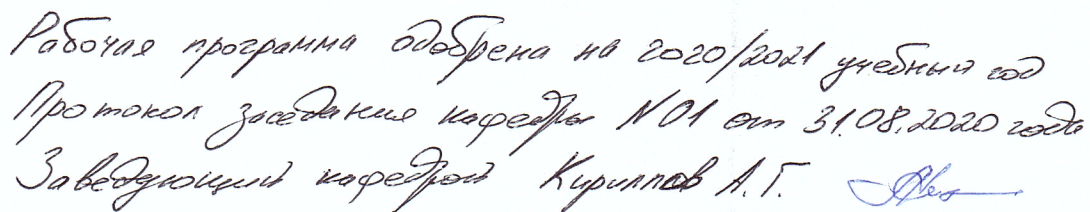 Рабочая программа одобрена на 2020/2021 учебный год
Протокол заседания кафедры №01 от 31.08.2020 года
Заведующий кафедрой Кириллов А.Г.